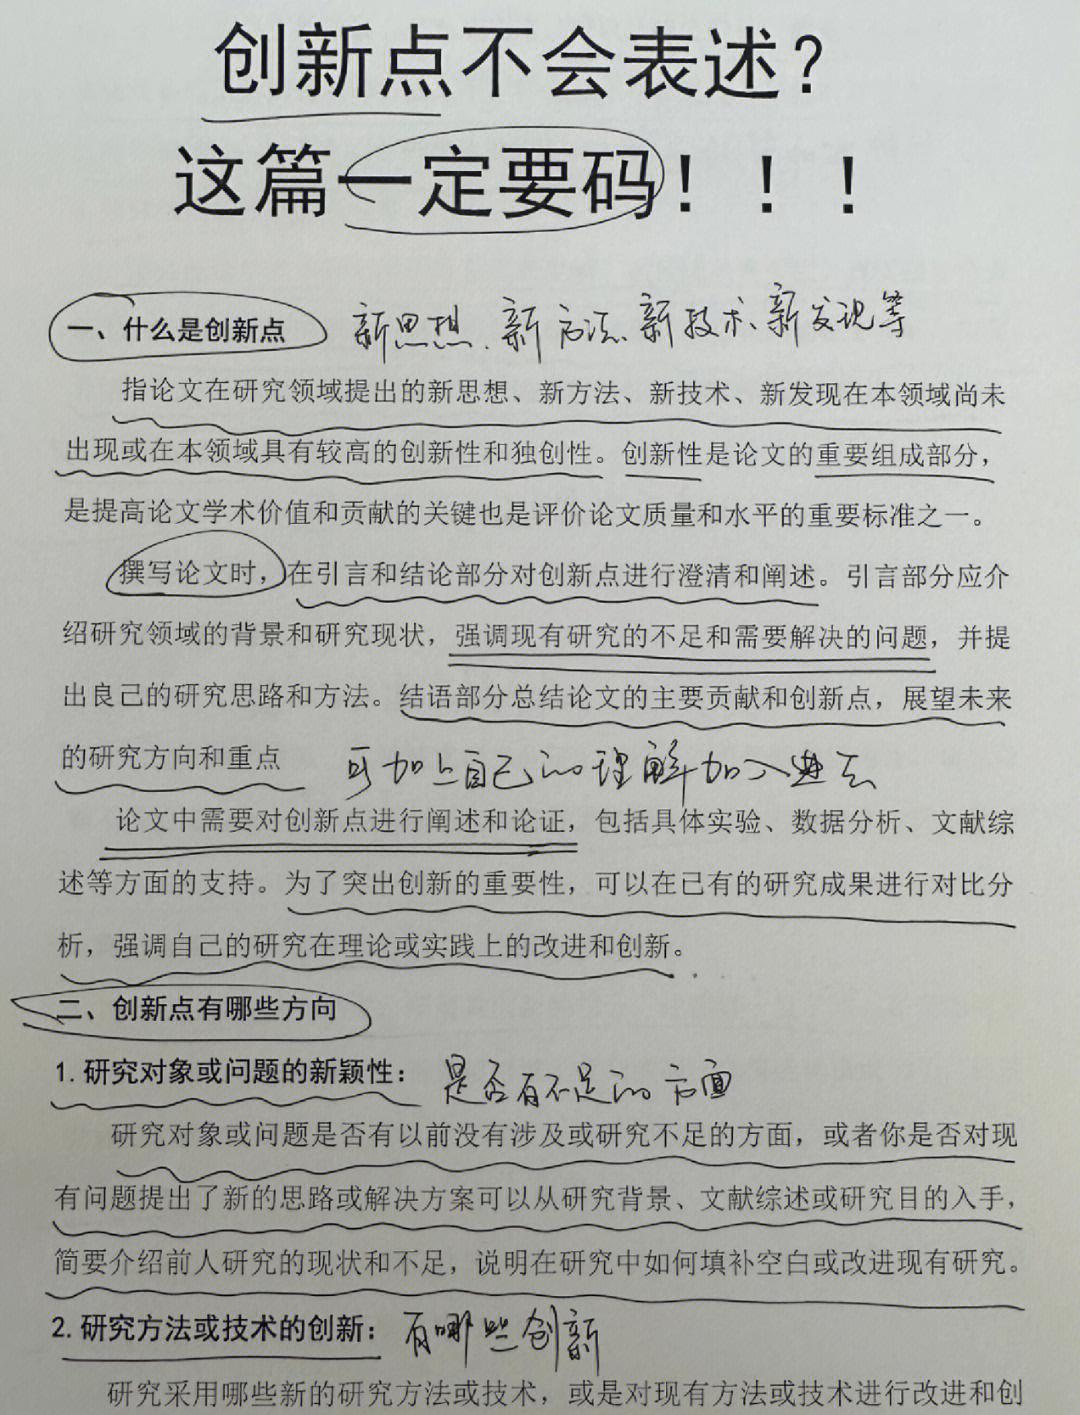 创新点不会表述？
这篇一定要码！！！
一、什么是创新点 新思想、新方法、新技术、新发现等
指论文在研究领域提出的新思想、新方法、新技术、新发现在本领域尚未
出现或在本领域具有较高的创新性和独创性。创新性是论文的重要组成部分，
是提高论文学术价值和贡献的关键也是评价论文质量和水平的重要标准之一。
撰写论文时，在引言和结论部分对创新点进行澄清和阐述。引言部分应介
绍研究领域的背景和研究现状，强调现有研究的不足和需要解决的问题，并提
出良己的研究思路和方法。结语部分总结论文的主要贡献和创新点，展望未来
的研究方向和重点 可加上自己的理解加入进去
论文中需要对创新点进行阐述和论证，包括具体实验、数据分析、文献综
述等方面的支持。为了突出创新的重要性，可以在已有的研究成果进行对比分
析，强调自己的研究在理论或实践上的改进和创新。
二、创新点有哪些方向
1. 研究对象或问题的新颖性： 是否有不足的方面
研究对象或问题是否有以前没有涉及或研究不足的方面，或者你是否对现
有问题提出了新的思路或解决方案可以从研究背景、文献综述或研究目的入手，
简要介绍前人研究的现状和不足，说明在研究中如何填补空白或改进现有研究。
2. 研究方法或技术的创新： 有哪些创新
研究采用哪些新的研究方法或技术，或是对现有方法或技术进行改进和创